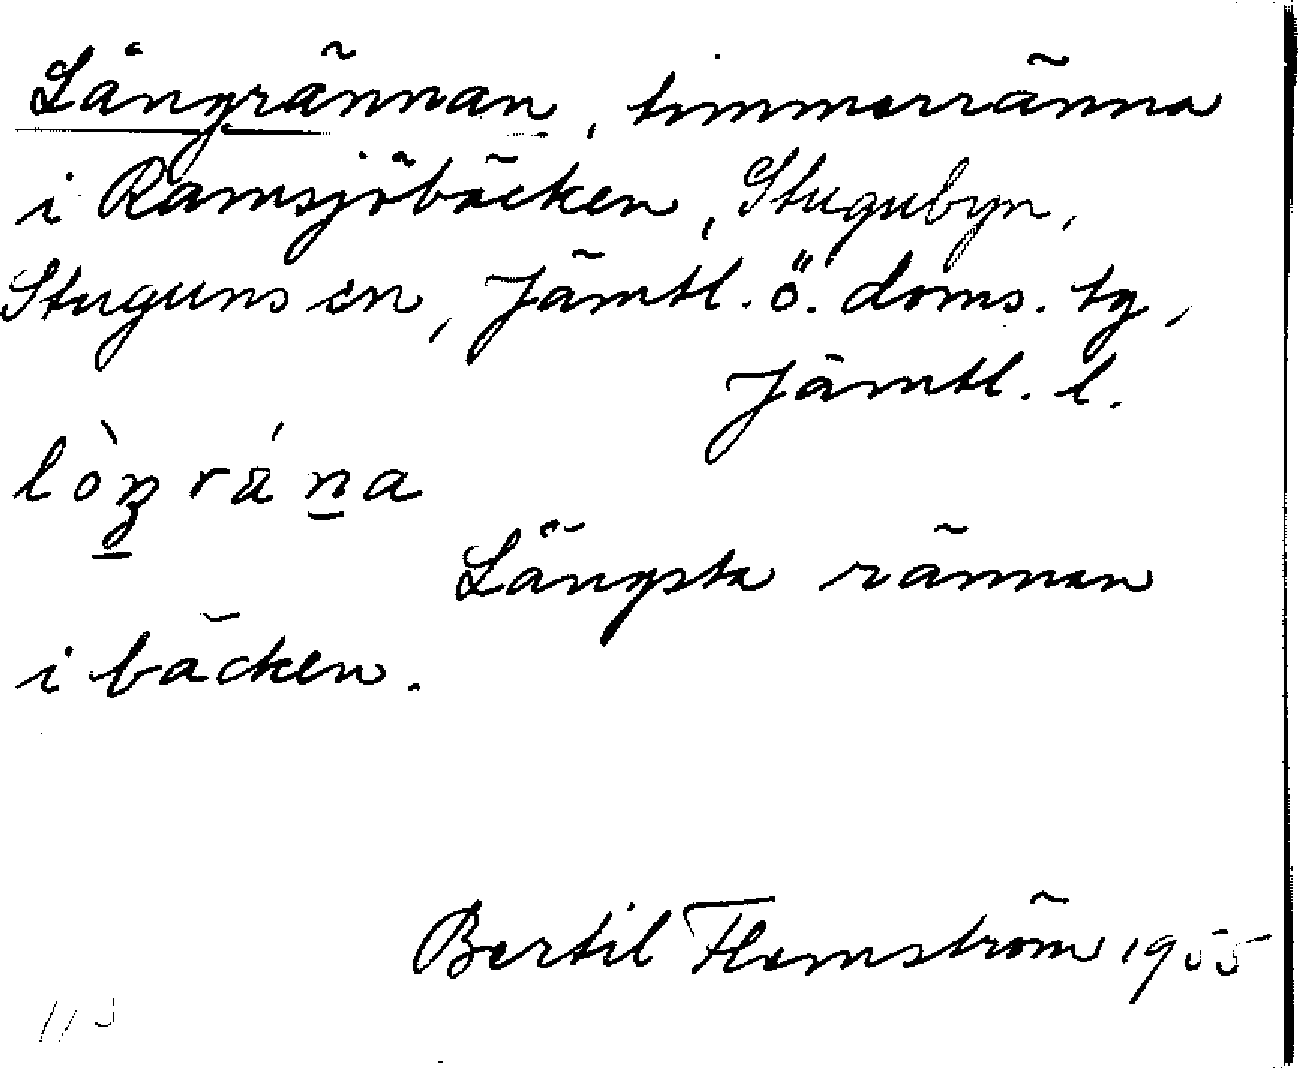 Långrännan, timmerränna
i Ramsjöbäcken, Stugubyn,
Stuguns sn, Jämtl. ö. doms. tg,
Jämtl. l.
lòŋráṉa
Längsta rännan
i bäcken.
Bertil Flemström 1955